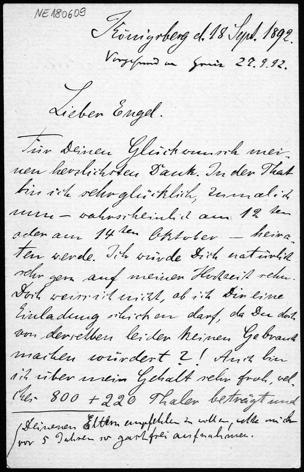 NE180609
Königsberg d. 18 Sept. 1892.
22.9.92.
Lieber Engel.
Für Deinen Glückwunsch mei-
nen herzlichsten Dank. In der That
bin ich sehr glücklich, zumal ich
nun – wahrscheinlich am 12ten
oder am 14ten Oktober – heira-
ten werde. Ich würde Dich natürlich
sehr gern auf meiner Hochzeit sehn.
Doch weiss ich nicht, ob ich Dir eine
Einladung schicken darf, da Du doch
von derselben leider keinen Gebrauch
machen würdest?! Auch bin
ich über mein Gehalt sehr froh, wel-
ches 800 + 220 Thaler beträgt und
Deinen Eltern empfehlen zu wollen, welche mich
vor 5 Jahren so gastfrei aufnahmen.